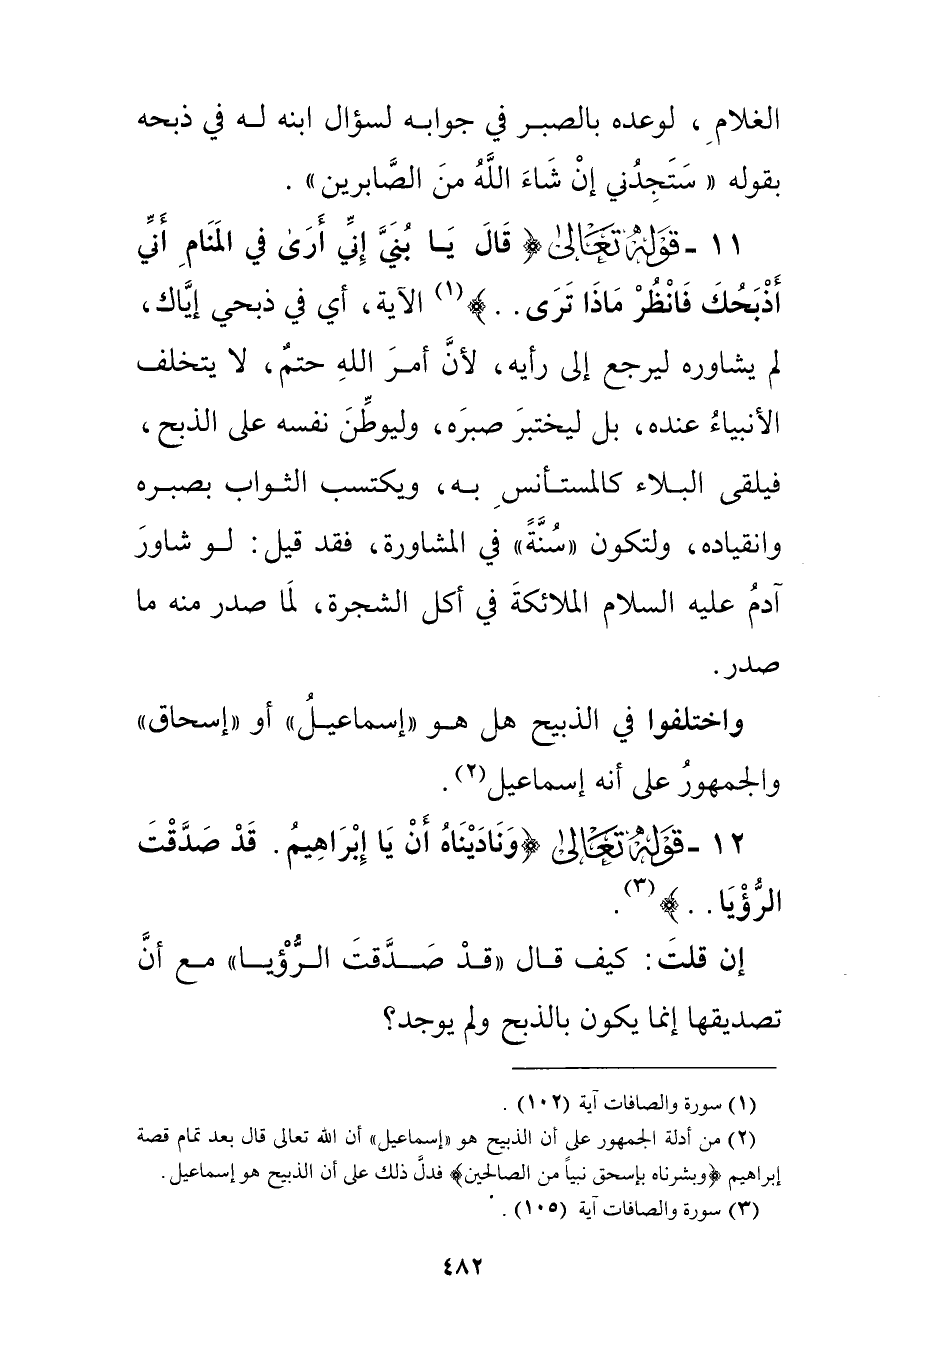 الغلامِ ، لوعده بالصبر في جوابه لسؤال ابنه له في ذبحه
بقوله « سَتَجِدُني إنْ شَاءَ اللَّهُ منَ الصَّابرين» .
١١ - قَوْلُهُ تَعَالىٰ ﴿ قَالَ يَا بُنَيَّ إنِّي أَرَىٰ في المَنَامِ أَنِّي
أَذْبَحُكَ فَانْظُرْ مَاذَا تَرَى . . ﴾(١) الآية، أي في ذبحي إيَّاك،
لم يشاوره ليرجع إلى رأيه، لأنَّ أمرَ اللهِ حتمٌ، لا يتخلف
الأنبياءُ عنده، بل ليختبرَ صبرَه، وليوطِّنَ نفسه على الذبح،
فيلقى البلاء كالمستأنسِ به، ويكتسب الثواب بصبره
وانقياده، ولتكون «سُنَّةً» في المشاورة، فقد قيل: لو شاورَ
آدمُ عليه السلام الملائكةَ في أكل الشجرة، لَما صدر منه ما
صدر.
واختلفوا في الذبيح هل هو «إسماعيلُ» أو «إسحاق»
والجمهورُ على أنه إسماعيل(٢).
١٢ - قَوْلُهُ تَعَالىٰ ﴿وَنَادَيْنَاهُ أَنْ يَا إبْرَاهِيمُ. قَدْ صَدَّقْتَ
الرُّؤْيَا . . ﴾(٣).
إن قلتَ: كيف قال «قدْ صَدَّقتَ الرُّؤْيا» مع أنَّ
تصديقها إنما يكون بالذبح ولم يوجد؟
(١) سورة والصافات آية (١٠٢) .
(٢) من أدلة الجمهور على أن الذبيح هو «إسماعيل» أن الله تعالى قال بعد تمام قصة
إبراهيم ﴿وبشرناه بإسحق نبياً من الصالحين﴾ فدلَّ ذلك على أن الذبيح هو إسماعيل.
(٣) سورة والصافات آية (١٠٥) .
٤٨٢